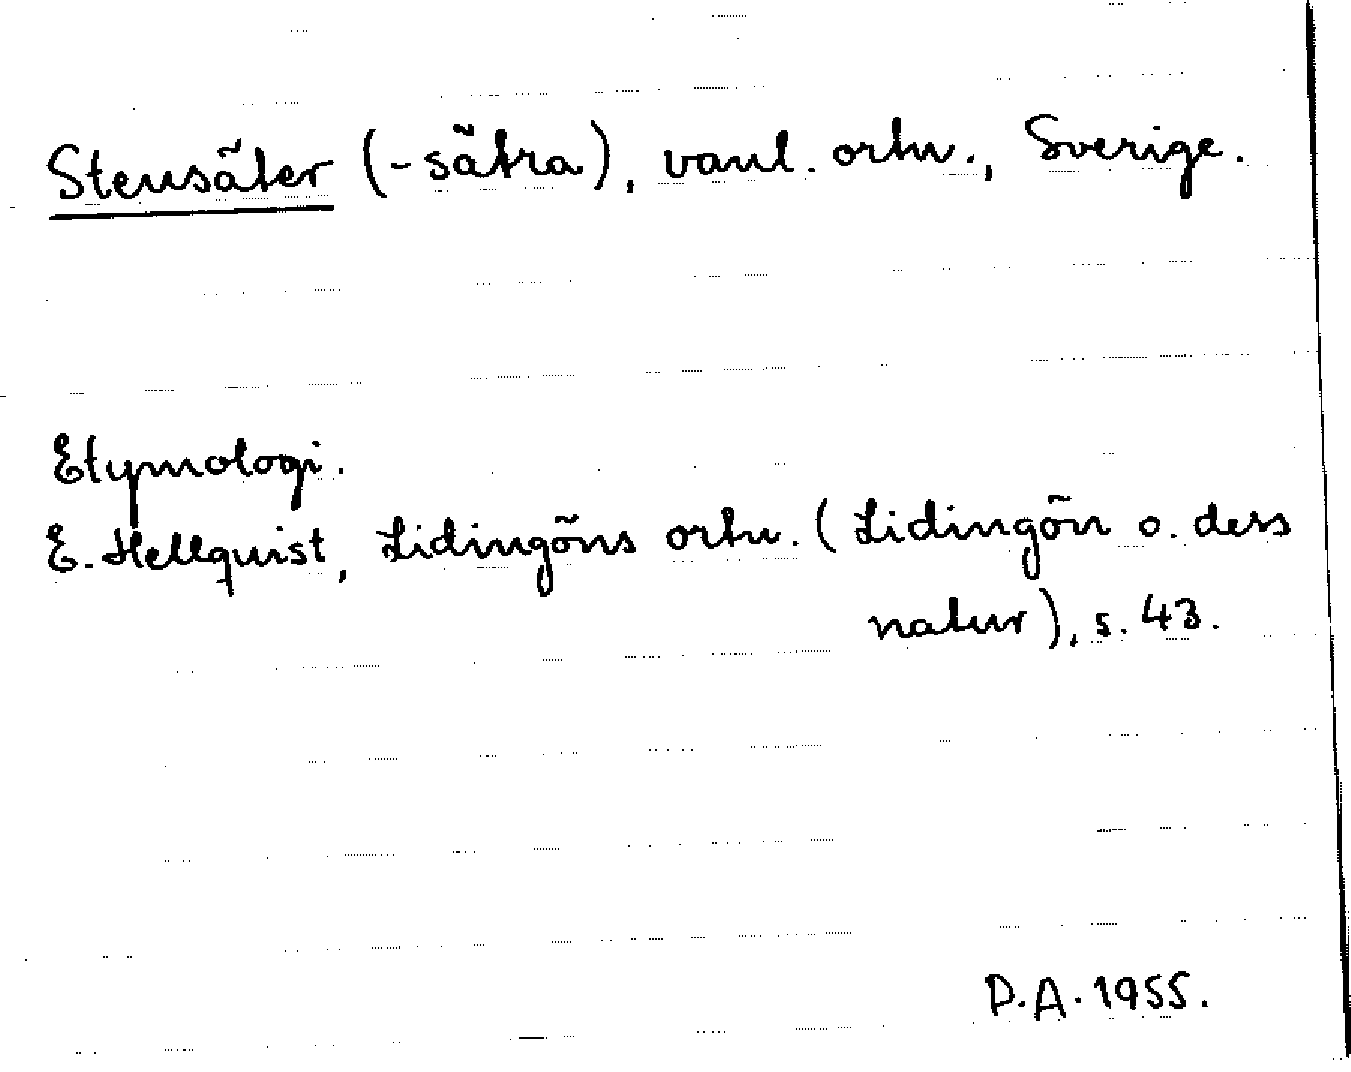 Stensäter (-sätra), vanl. ortn., Sverige.
Etymologi.
E. Hellquist, Lidingöns ortn. (Lidingön o. dess
natur), s. 43.
P.A. 1955.